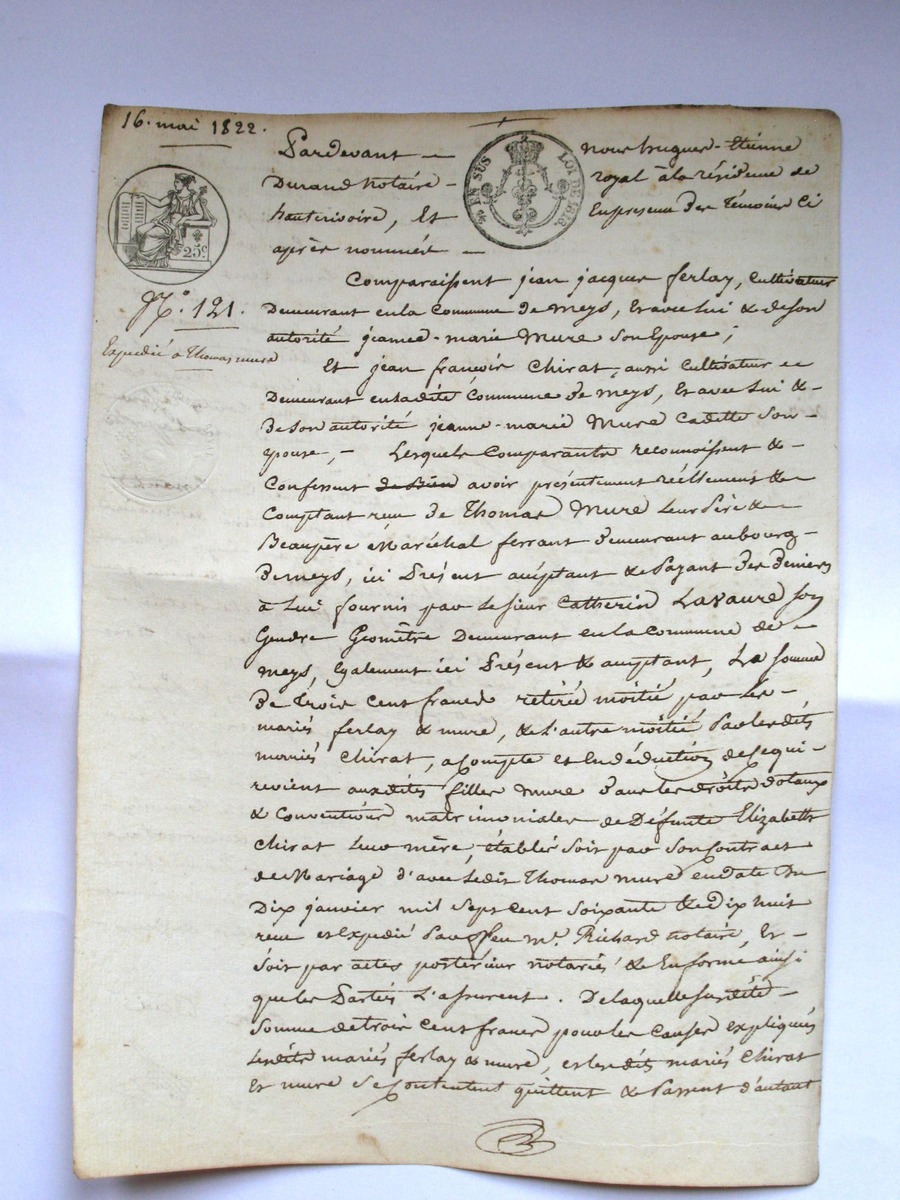 16. mai 1822.
Pardevant — nous hugues-Etienne
Durand notaire - royal à la résidence de
hauterivoire, Et En présence Des Témoins Ci
après nommés —
EN SUS LOI DE 1816.
25c
N.o 121.
Expedié a Thomas mure
Comparaissent jean jacques ferlay, Cultivateur
Demeurant en la Commune De meys, Et avec Lui & de son
autorité jeanne-marie Mure Son Epouse;
Et jean francois Chirat, aussi Cultivateur
Demeurant en ladite Commune De meys, Et avec Lui &-
De Son autorité jeanne-marie Mure Cadette Son-
epouse, - Lesquels Comparants reconnoissent &-
Confessent de Bien avoir présentement réellement &-
Comptant reçu De Thomas Mure Leur Père &-
Beaupère Maréchal ferrant Demeurant au bourg-
De meys, ici Présent acceptant & Payant Des Deniers
à Lui fournis par Le Sieur Catherin Lavaure son
Gendre Géomètre Demeurant en la Commune de-
meys, Egalement ici Présent & acceptant, La somme
De Trois Cent francs retirée moitié par Les-
mariés ferlay & mure, & L'autre moitié Par les dits
mariés Chirat, a Compte et En déduction de Ce qui-
revient aux dites filles Mure Dans les droits dotaux
& Conventions matrimoniales de Défunte Elizabeth
Chirat Leur mère, établis Soit par Son Contract
de Mariage d'avec Ledit Thomas Mure en date du
Dix janvier mil Sept Cent Soixante & Dix huit
recu et Expedié Par feu Me. Richard notaire, Et-
Soit par actes postérieur notariés & En forme ainsi
que les Parties L'assurent. De laquelle susdite-
Somme de trois Cent francs pour les Causes Expliquées
Lesdits mariés ferlay & mure, et les dits mariés Chirat
Et mure Se Contentent quittent & Passent d'autant